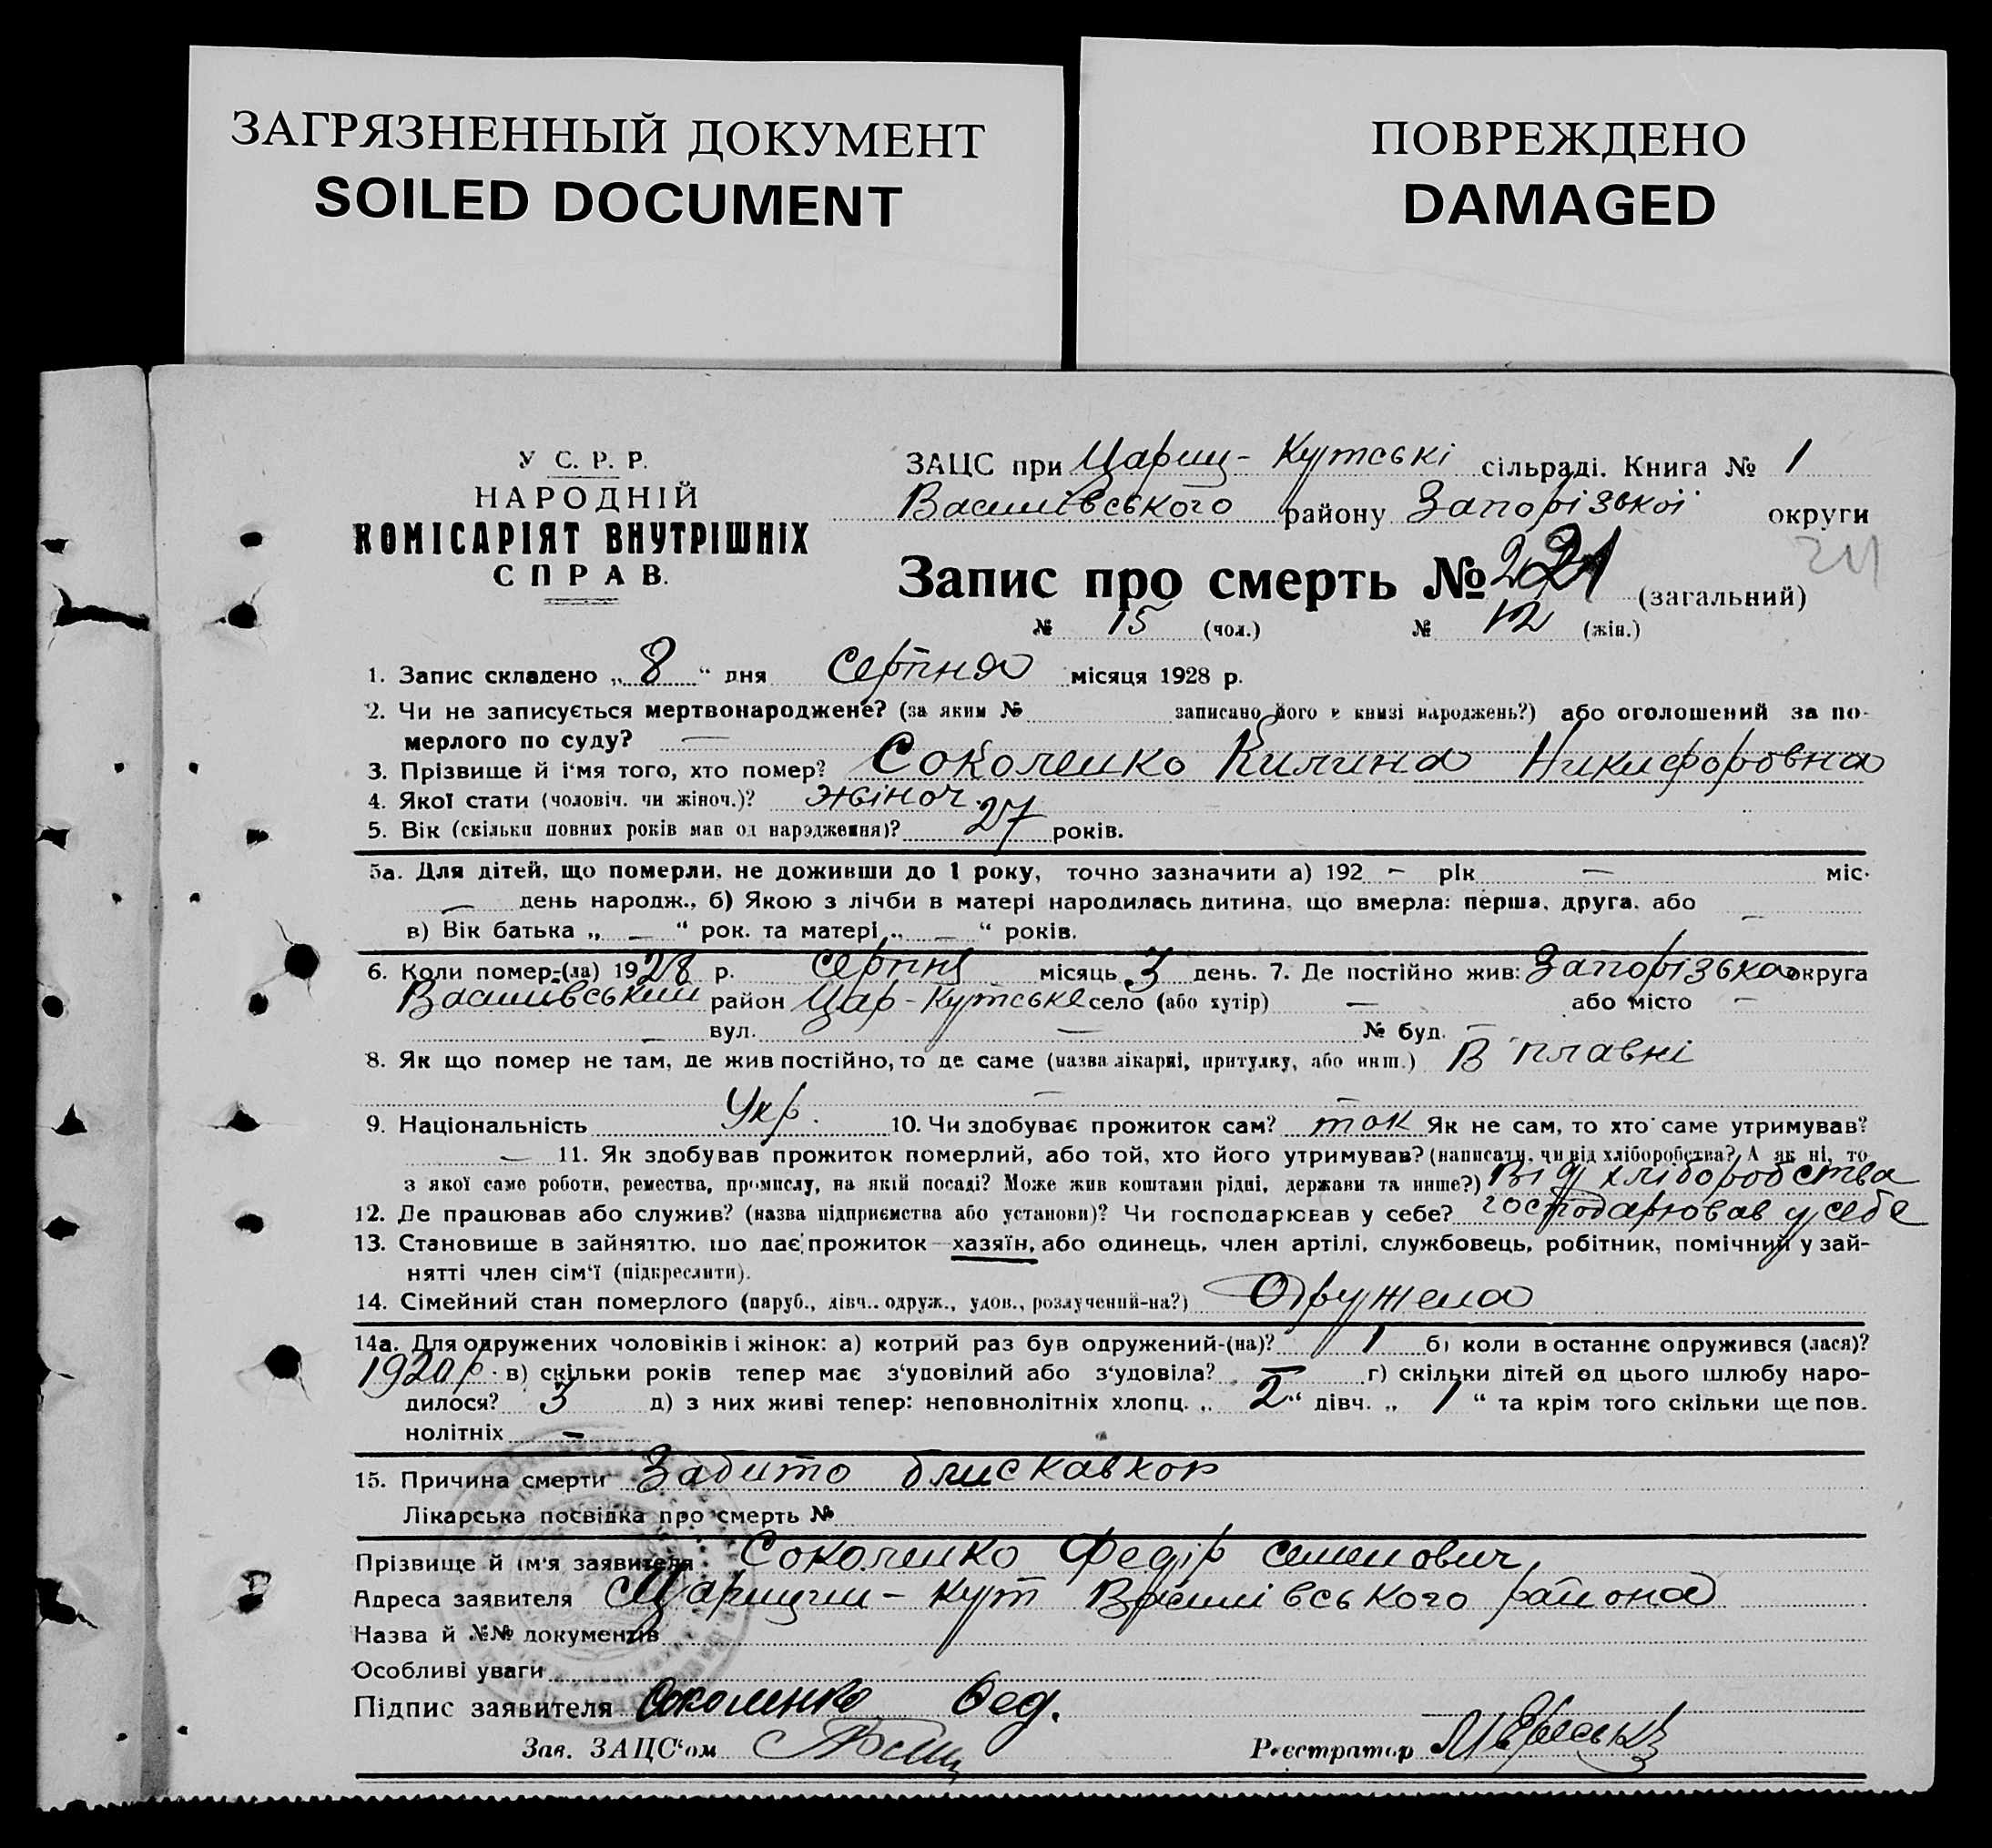 ЗАГРЯЗНЕННЫЙ ДОКУМЕНТ
SOILED DOCUMENT
ПОВРЕЖДЕНО
DAMAGED
У С. Р. Р.
НАРОДНІЙ
КОМІСАРІЯТ ВНУТРІШНІХ
СПРАВ.
ЗАЦС при Цариц-Кутські сільраді. Книга № 1
Василівського району Запорізької округи
Запис про смерть № (загальний)
№ 15 (чол.) № 12 (жін.)
1. Запис складено „ 8 “ дня Серпня місяця 1928 р.
2. Чи не записується мертвонароджене? (за яким № записано його в книзі народжень?) або оголошений за по-
мерлого по суду? —
3. Прізвище й і'мя того, хто помер? Соколенко Килина Никифоровна
4. Якої стати (чоловіч. чи жіноч.)? жіноч.
5. Вік (скільки повних років мав од народження)? 27 років.
5а. Для дітей, що померли, не доживши до 1 року, точно зазначити а) 192 – рік — міс.
— день народж., б) Якою з лічби в матері народилась дитина, що вмерла: перша, друга, або —
в) Вік батька „ — “ рок. та матері „ — “ років.
6. Коли помер-(ла) 1928 р. серпня місяць 3 день. 7. Де постійно жив: Запорізька округа
Василівський район Цар-Кутське село (або хутір) — або місто –
— вул. — № буд. –
8. Як що помер не там, де жив постійно, то де саме (назва лікарні, притулку, або инш.) В плавні
—
9. Національність Укр. 10. Чи здобуває прожиток сам? так Як не сам, то хто саме утримував?
— 11. Як здобував прожиток померлий, або той, хто його утримував? (написати, чи від хліборобства? А як ні, то
з якої саме роботи, ремества, промислу, на якій посаді? Може жив коштами рідні, держави та инше?) Від хліборобства
12. Де працював або служив? (назва підприємства або установи)? Чи господарював у себе? господарював у себе
13. Становище в зайняттю, шо дає прожиток — хазяїн, або одинець, член артілі, службовець, робітник, помічний у зай-
нятті член сім'ї (підкреслити).
14. Сімейний стан померлого (паруб., дівч., одруж., удов., розлучений-на?) Одружена
14а. Для одружених чоловіків і жінок: а) котрий раз був одружений-(на)? 1 б) коли в останнє одружився (лася)?
р. в) скільки років тепер має з'удовілий або з'удовіла? — г) скільки дітей од цього шлюбу наро-
дилося? 3 д) з них живі тепер: неповнолітніх хлопц. „ 2 “ дівч. „ 1 “ та крім того скільки ще пов.
нолітніх –
15. Причина смерти Забито блискавкою
Лікарська посвідка про смерть №
Прізвище й ім'я заявителя: Соколенко Федір Семенович,
Адреса заявителя Царицин-Кут Василівського района
Назва й №№ документів
Особливі уваги
Підпис заявителя Соколенко Фед.
Зав. ЗАЦС'ом
Реєстратор